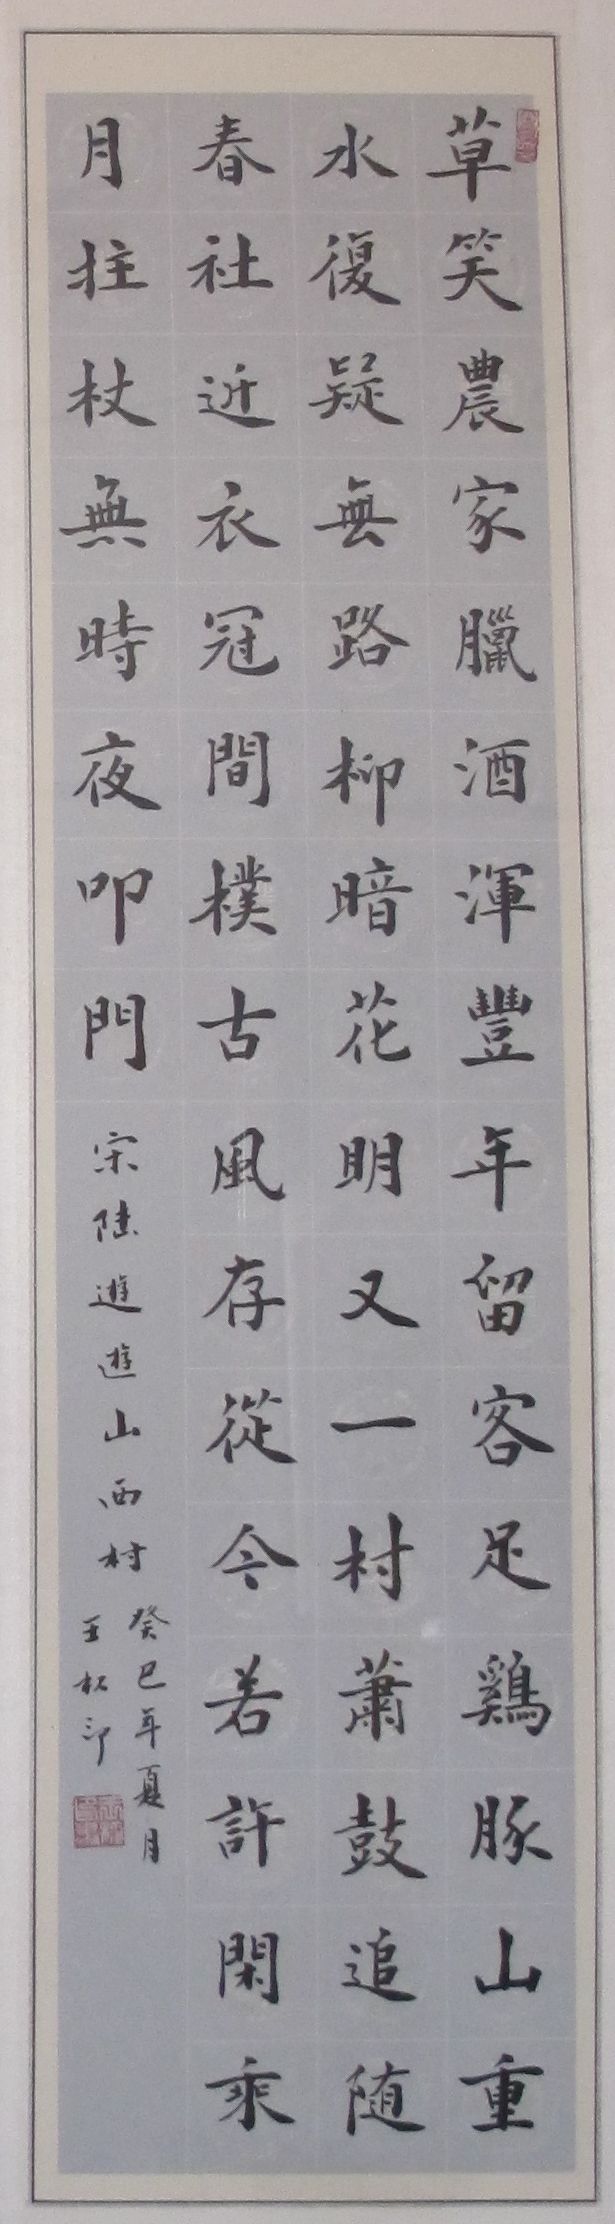 草笑農家臘酒渾豐年留客足鷄豚山重
水復疑無路柳暗花明又一村蕭鼓追随
春社近衣冠間樸古風存從今若許閑乘
月拄杖無時夜叩門
宋陸遊遊山西村
癸巳年夏月
王松印